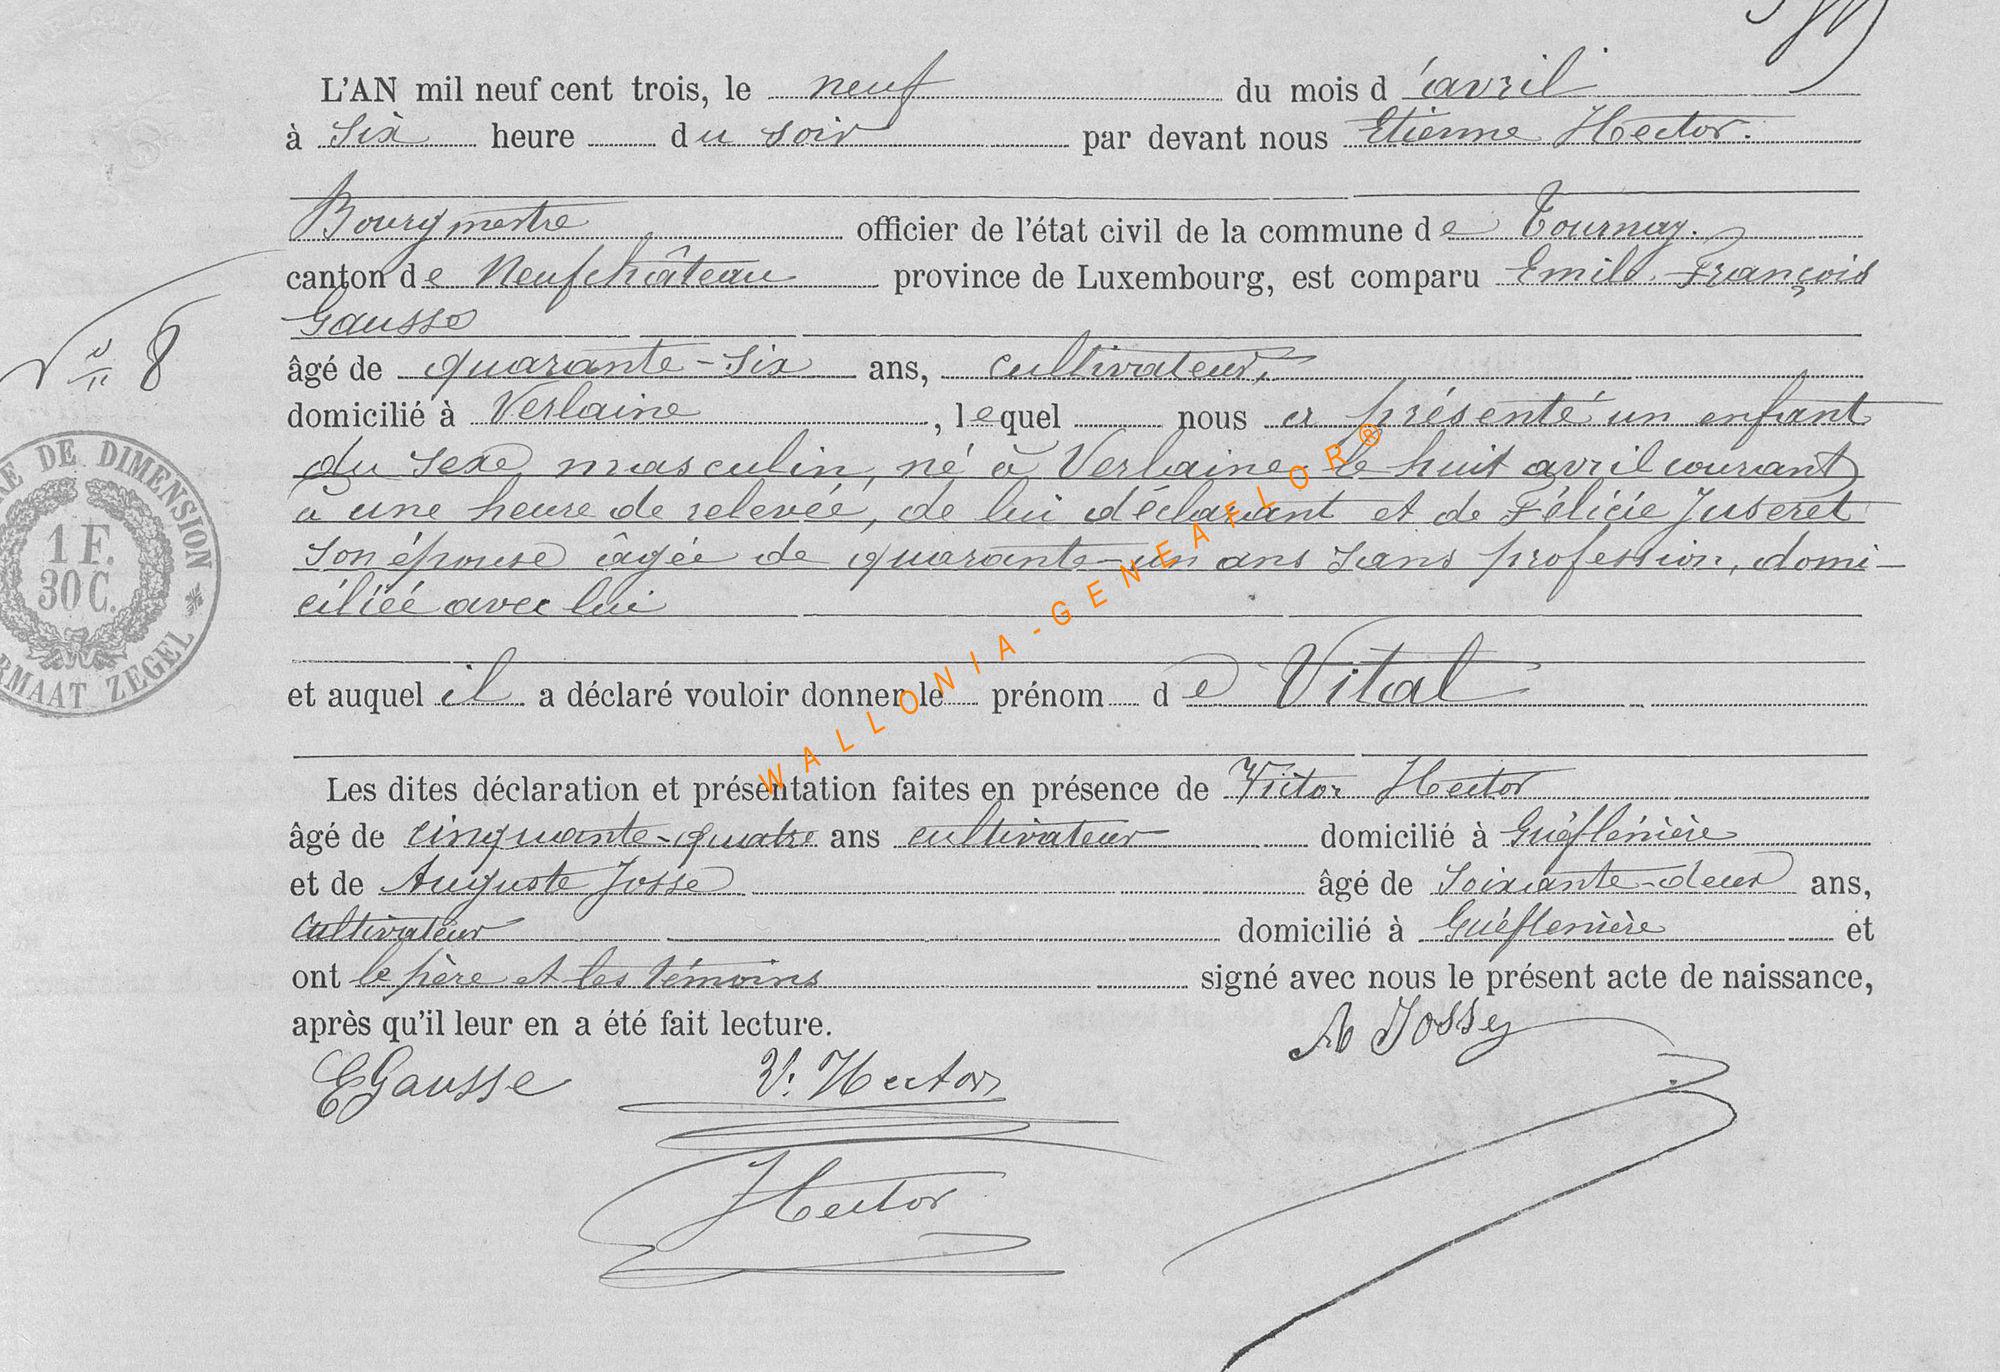 L'AN mil neuf cent trois, le neuf du mois d'avril
à six heure du soir par devant nous Etienne Hector.
Bourgmestre officier de l'état civil de la commune de Tournay.
canton de Neufchâteau province de Luxembourg, est comparu Emile François
Gausse
N° 8
âgé de quarante-six ans, cultivateur,
domicilié à Verlaine, lequel nous a présenté un enfant
du sexe masculin, né à Verlaine le huit avril courant
à une heure de relevée, de lui déclarant et de Félicie Juseret
son épouse âgée de quarante-un ans sans profession, domi-
ciliée avec lui
RE DE DIMENSION
1 F.
30 C.
RMAAT ZEGEL
et auquel il a déclaré vouloir donner le prénom de Vital
Les dites déclaration et présentation faites en présence de Victor Hector
âgé de cinquante-quatre ans cultivateur domicilié à Grüeflenière
et de Auguste Josse âgé de soixante-deux ans,
cultivateur domicilié à Grüeflenière et
ont le père et les témoins signé avec nous le présent acte de naissance,
après qu'il leur en a été fait lecture.
EGausse V. Hector A Jossey
Hector
WALLONIA-GENEAFLOR®